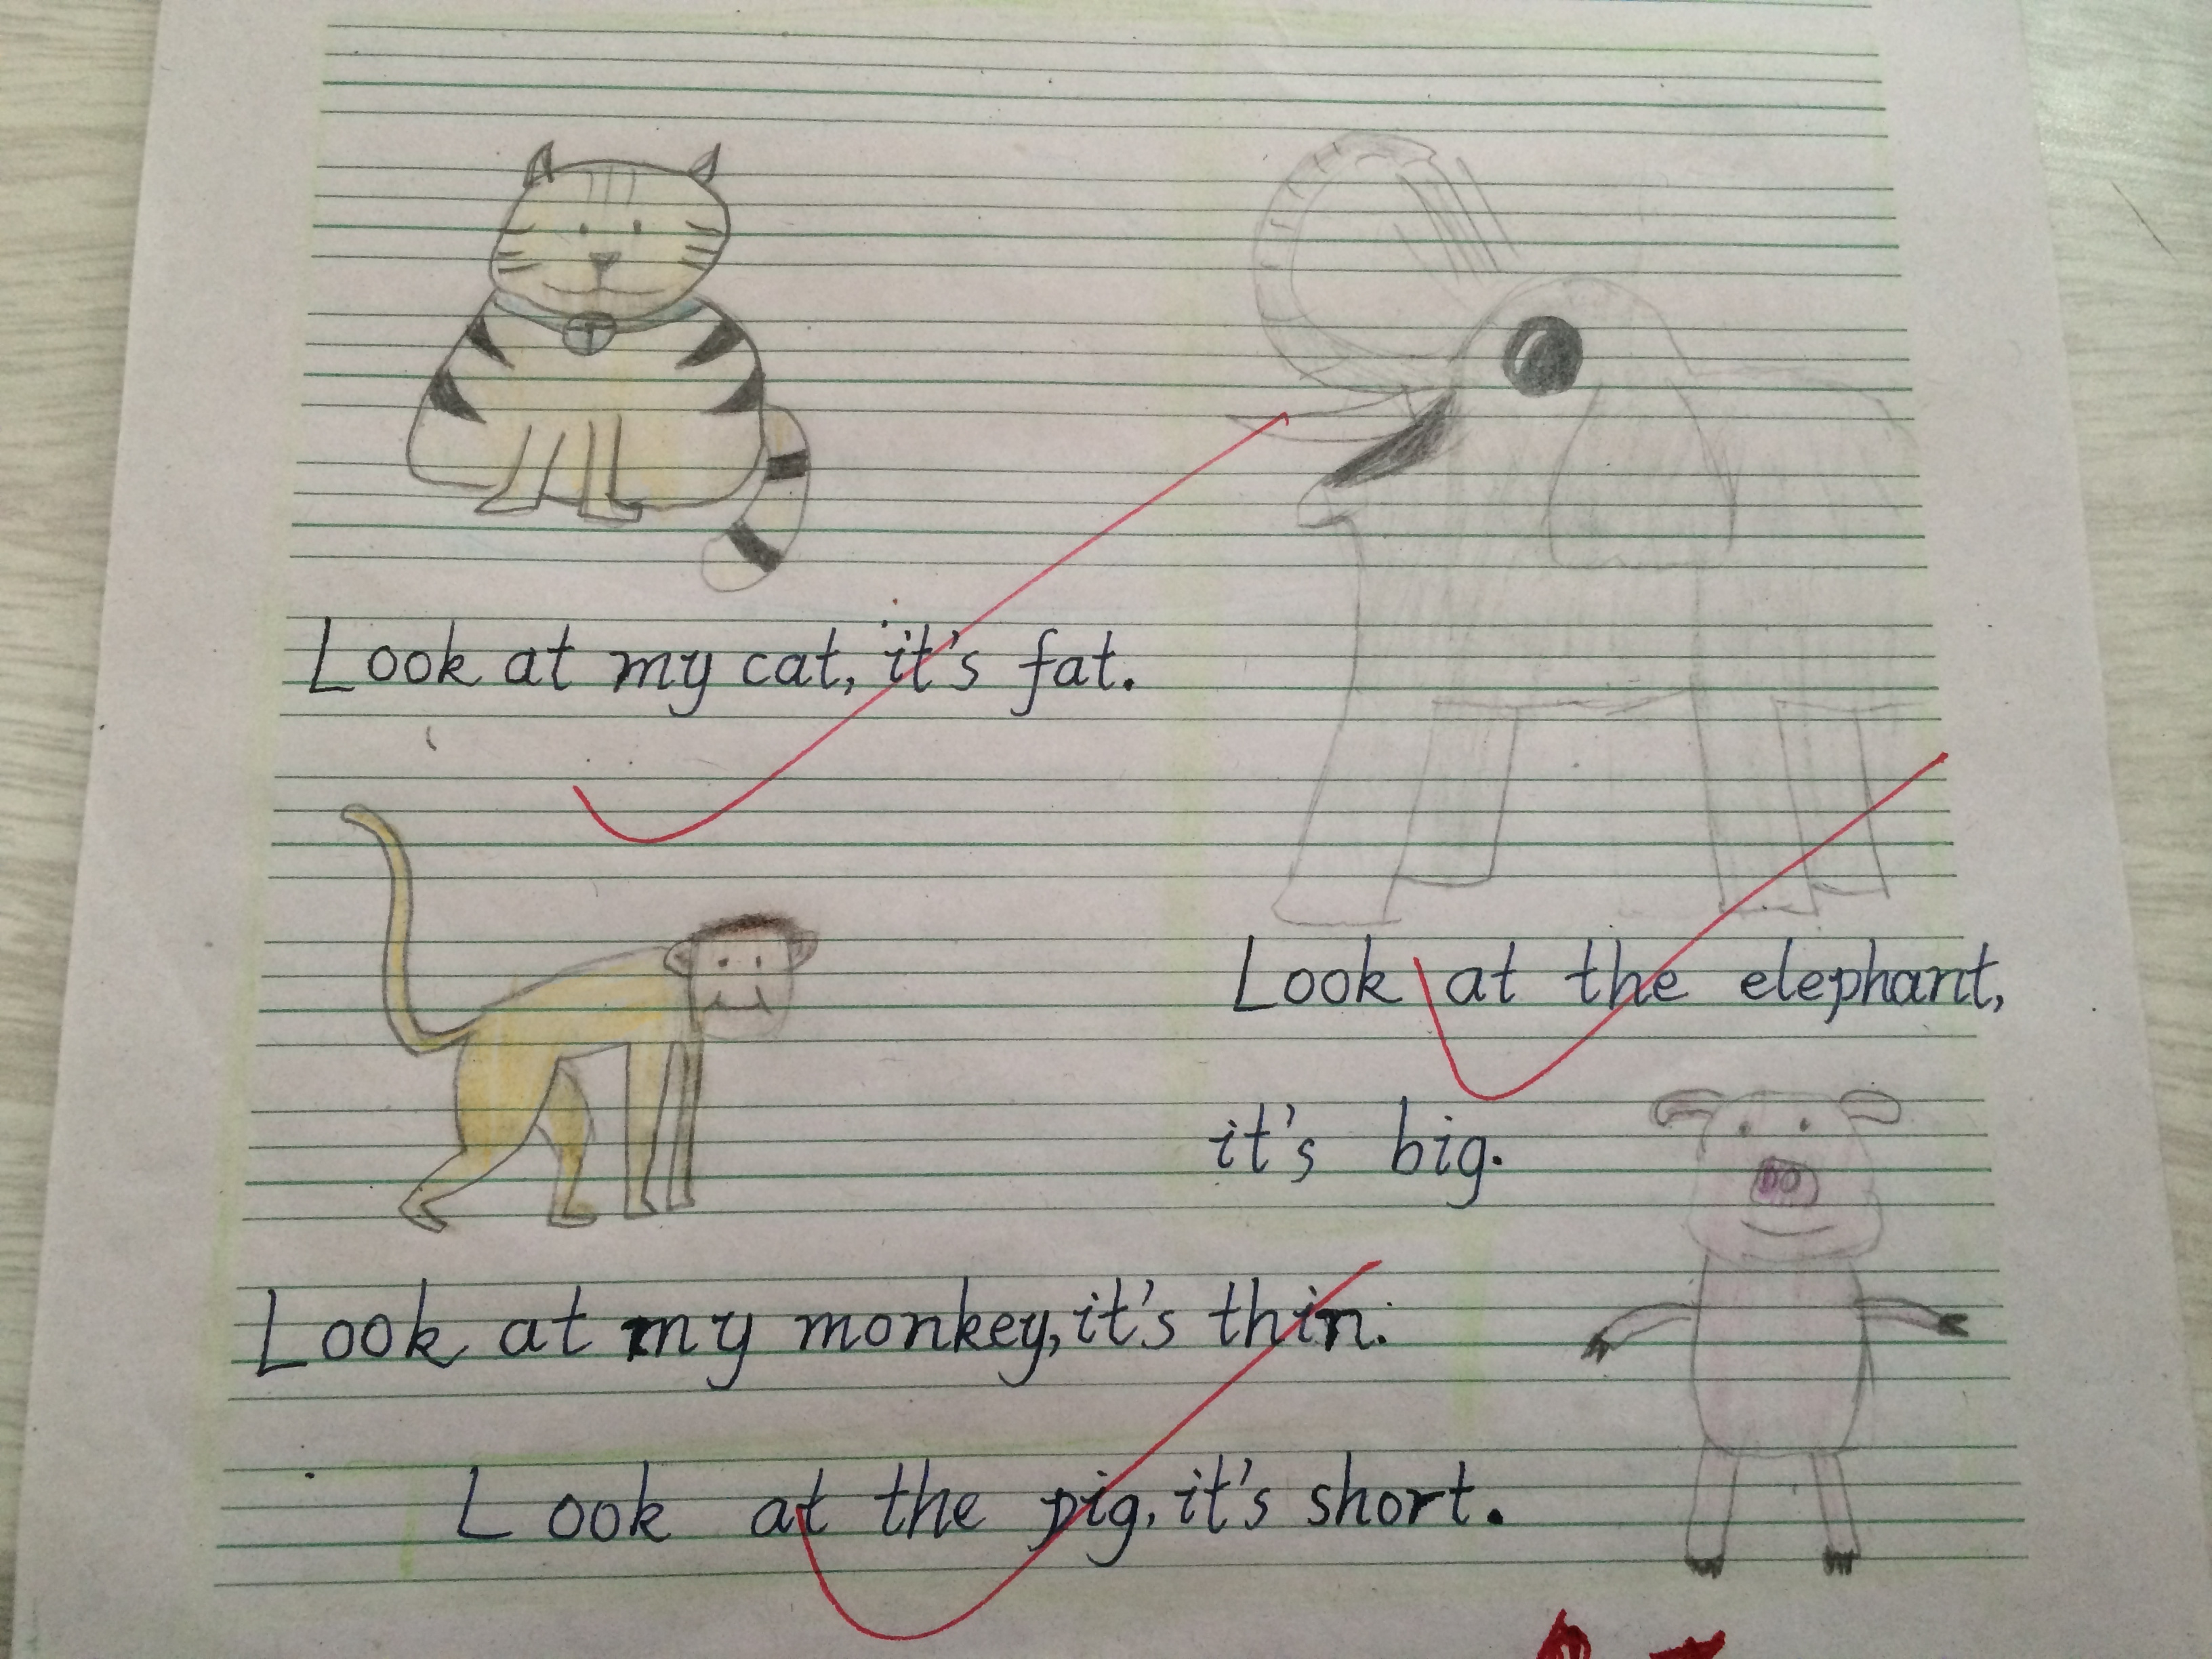 Look at my cat, it's fat.
Look at the elephant,
it's big.
Look at my monkey, it's thin.
Look at the pig, it's short.